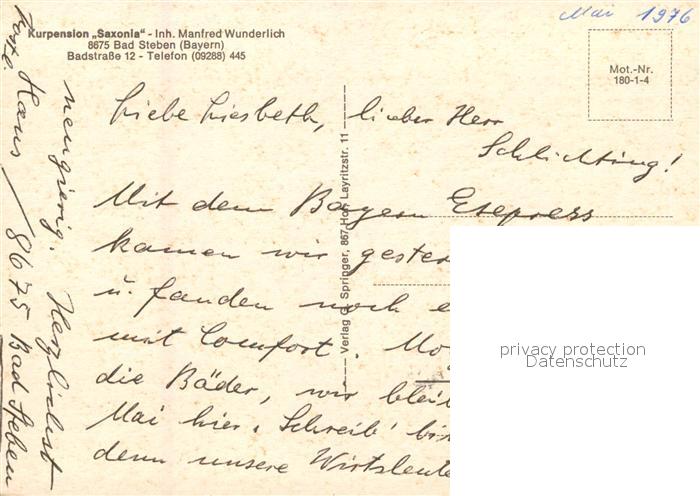 Mai 1976
Kurpension „Saxonia“ - Inh. Manfred Wunderlich
8675 Bad Steben (Bayern)
Badstraße 12 - Telefon (09288) 445
Mot.-Nr.
180-1-4
Verlag G. Springer, 867 Hof, Layritzstr. 11
Liebe Liesbeth, lieber Herr
Schlichting!
Mit dem Bayern Express
kamen wir
u. fanden noch
mit Comfort.
die Bäder, wir
Mai hier. Schreib'
denn unsere Wirtsleute
neugierig. Herzlichst
Haus / 8675 Bad Steben
privacy protection
Datenschutz